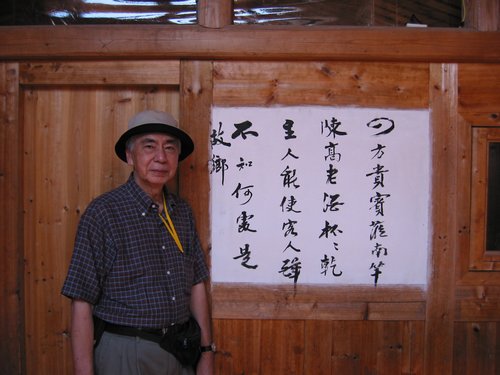 四方貴賓蒞南竿
陳高老酒杯〻乾
主人能使客人醉
不知何處是
故鄉